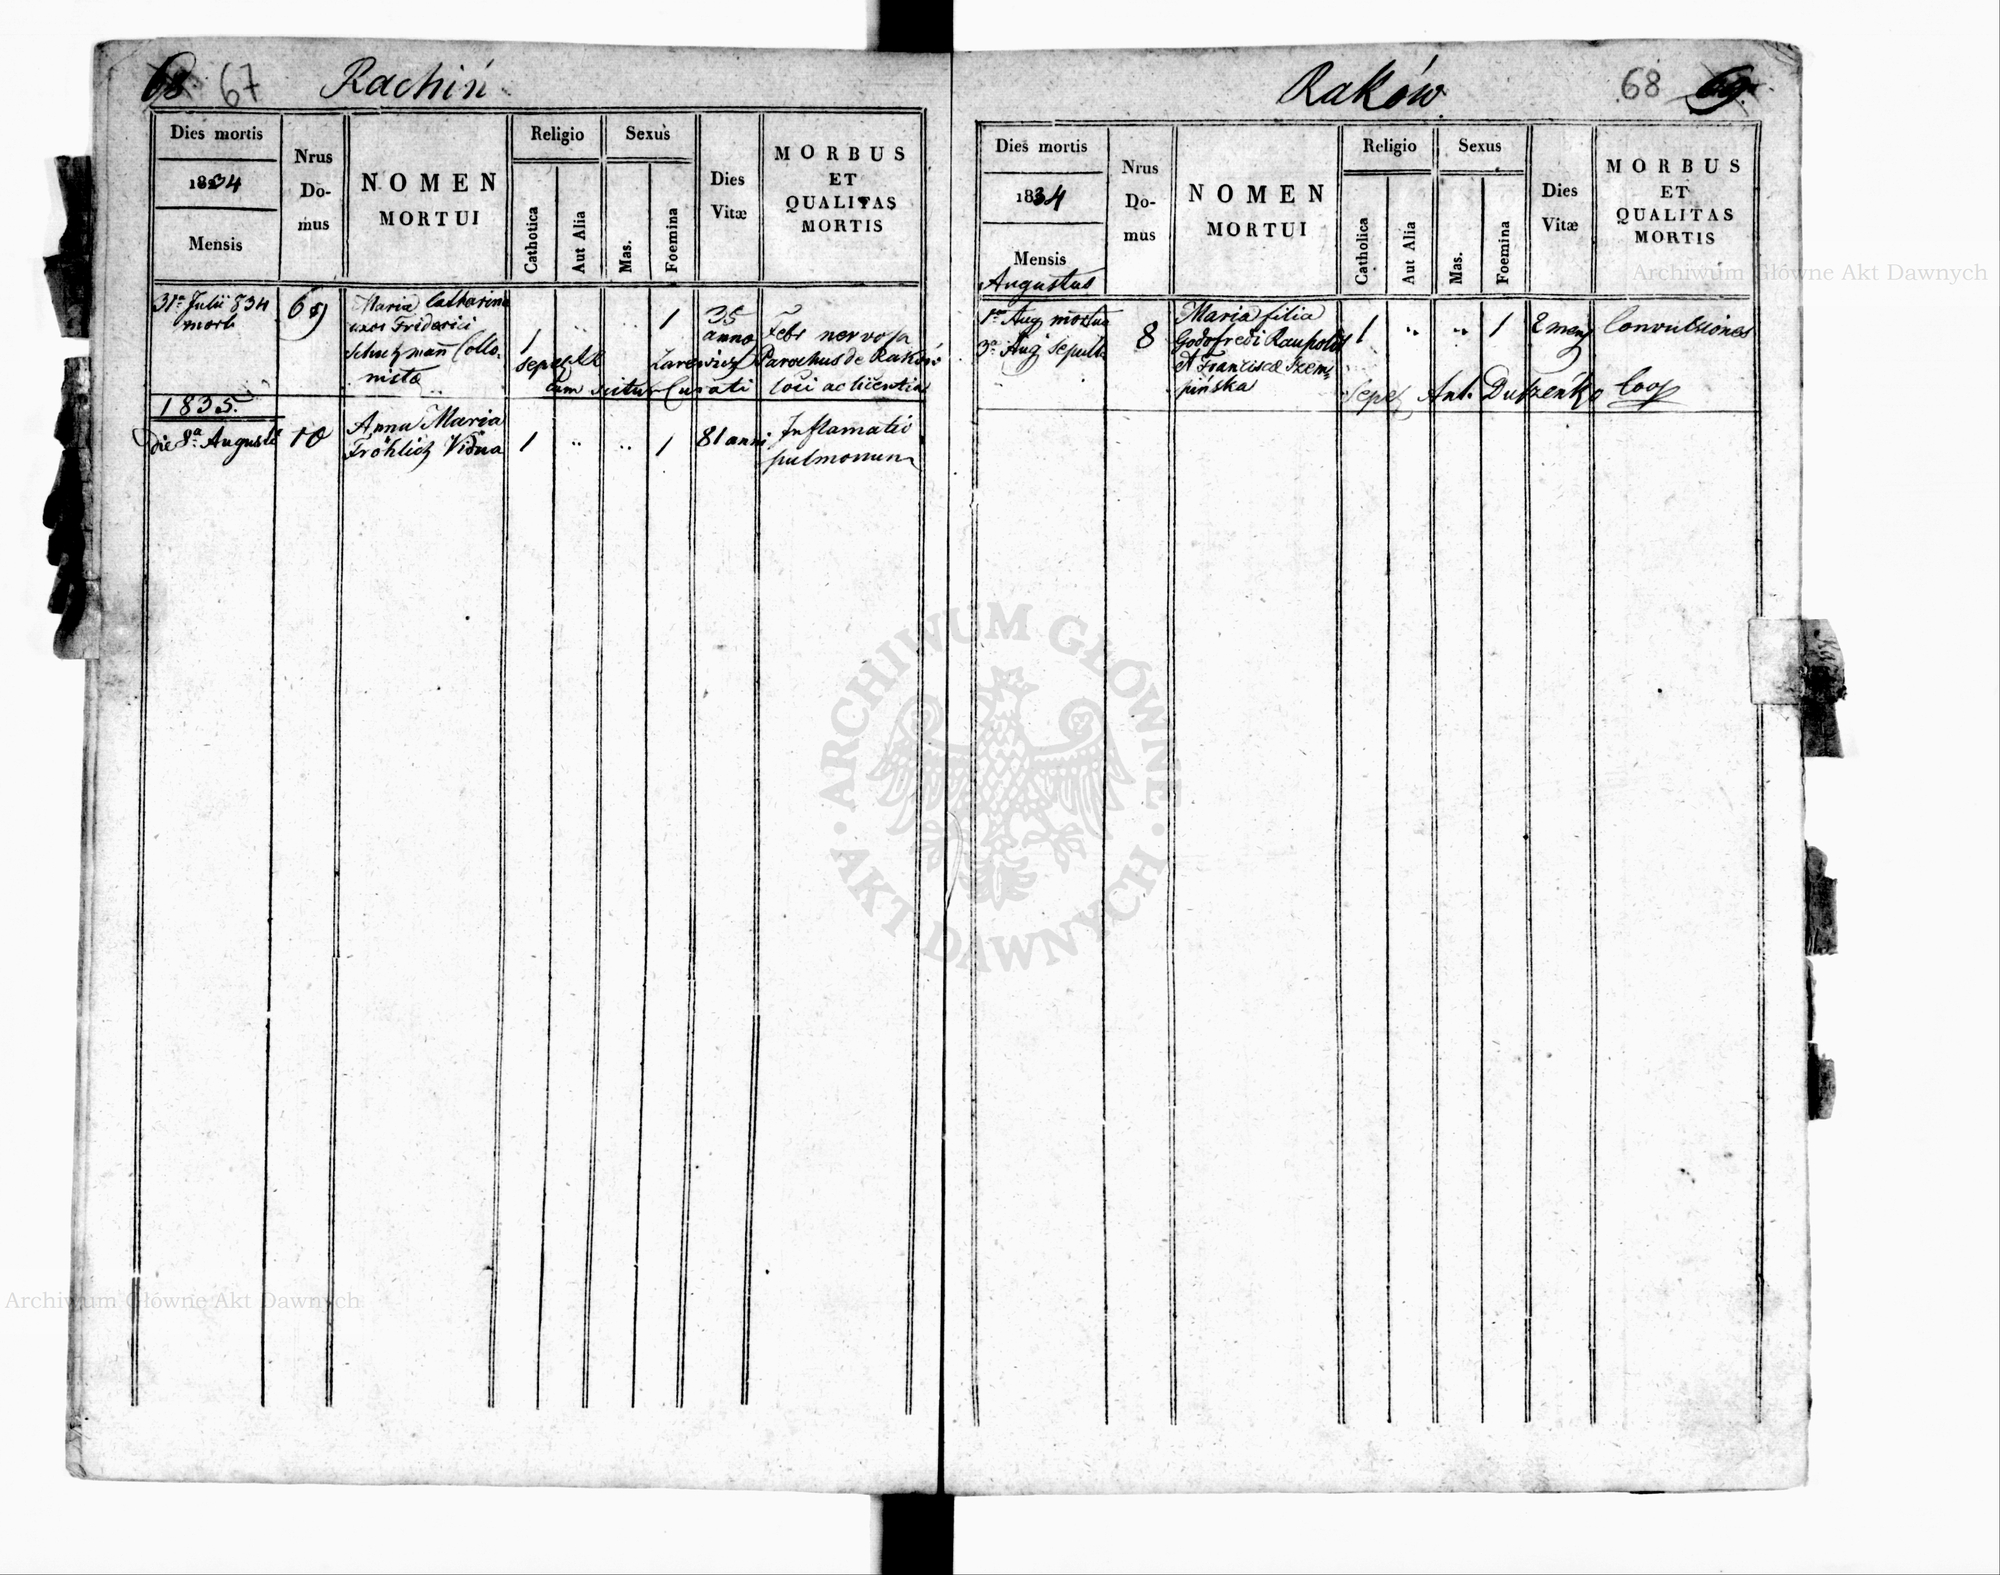 67 Rachiń
Dies mortis
1834
Mensis
Nrus
Do-
mus
NOMEN
MORTUI
Religio
Cathotica
Aut Alia
Sexus
Mas.
Foemina
Dies
Vitæ
MORBUS
ET
QUALITAS
MORTIS
31a Julii 834
mort
Maria Catharina
uxor Friderici
Schutzmañ Collo-
nistæ
1
"
"
1
35
anno
Febr nervosa
Sepel
Zarewicz Parochus de Raków
cum scitu Curati loci ac licentia
1835.
Die 8a Augusti
10
Anna Maria
Fröhlich Vidua
1
"
"
1
81 anni
Inflamatio
pulmonum
Raków 68 69
Dies mortis
1834
Mensis
Augustus
Nrus
Do-
mus
NOMEN
MORTUI
Religio
Catholica
Aut Alia
Sexus
Mas.
Foemina
Dies
Vitæ
MORBUS
ET
QUALITAS
MORTIS
1a Aug mortua
3a Aug Sepulta
8
Maria filia
Godofredi
et Franciscæ
1
"
"
1
2 mens
Convulsiones
Sepel Ant. Dutzeńko Coop
ARCHIWUM GŁÓWNE
AKT DAWNYCH
Archiwum Główne Akt Dawnych
Archiwum Główne Akt Dawnych